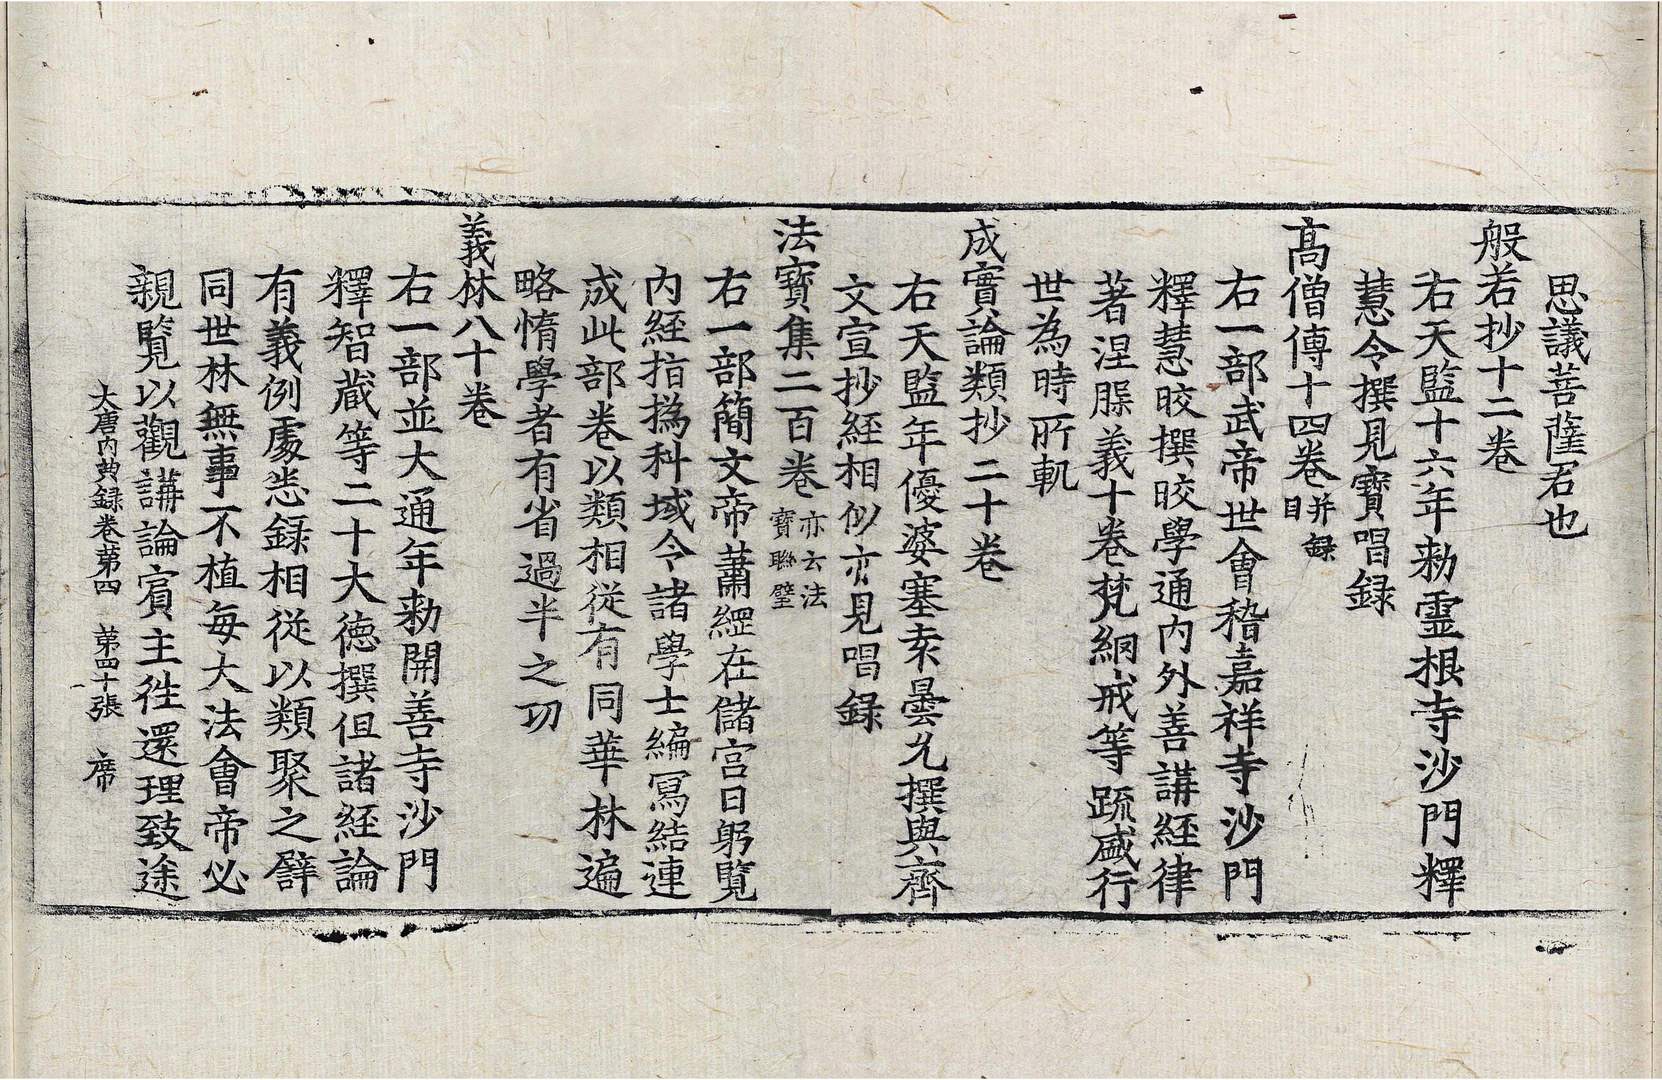 思議菩薩君也
般若抄十二卷
右天監十六年勑靈根寺沙門釋
慧令撰見寶唱録
髙僧傳十四卷并録目
右一部武帝世會稽嘉祥寺沙門
釋慧晈撰晈學通內外善講經律
著涅槃義十卷梵網戒等疏盛行
世為時所軌
成實論類抄二十卷
右天監年優婆塞袁曇允撰與齊
文宣抄經相似亦見唱録
法寶集二百卷亦云法寶聯璧
右一部簡文帝蕭綱在儲宮日躬覽
內經指撝科域令諸學士編寫結連
成此部卷以類相從有同華林遍
略惰學者有省過半之功
義林八十卷
右一部並大通年勑開善寺沙門
釋智藏等二十大德撰但諸經論
有義例處悉録相從以類聚之譬
同世林無事不植每大法會帝必
親覽以觀講論賓主往還理致途
大唐內典録卷第四 第四十張 席